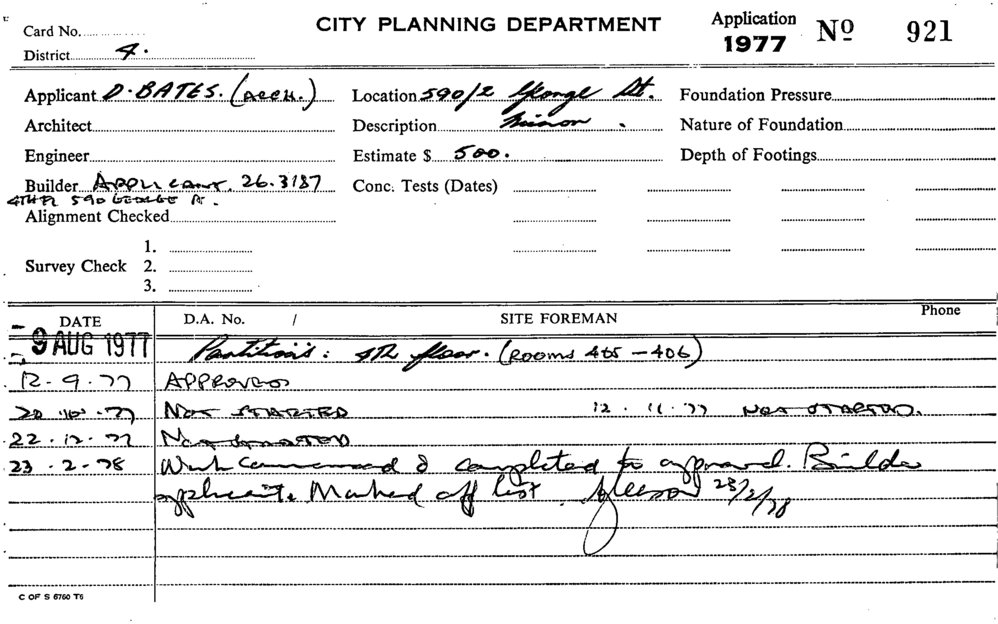 Card No.
CITY PLANNING DEPARTMENT
Application 1977 Nº 921
District 4.
Applicant D. BATES. (ARCH.) Location 590/2 George St. Foundation Pressure
Architect Description Minor. Nature of Foundation
Engineer Estimate $ 500. Depth of Footings
Builder APPLICANT. 26.3187 Conc. Tests (Dates)
4TH FL 590 GEORGE ST.
Alignment Checked
1.
Survey Check 2.
3.
DATE D.A. No. / SITE FOREMAN Phone
-9 AUG 1977 Partitions: 4th floor. (ROOMS 405 - 406)
12.9.77 APPROVED
20.10.77 NOT STARTED 12.11.77 NOT STARTED.
22.12.77 NOT STARTED
23.2.78 Work commenced & completed to approval. Builder
applicant. Marked off list. 23/2/78
C OF S 6760 T6